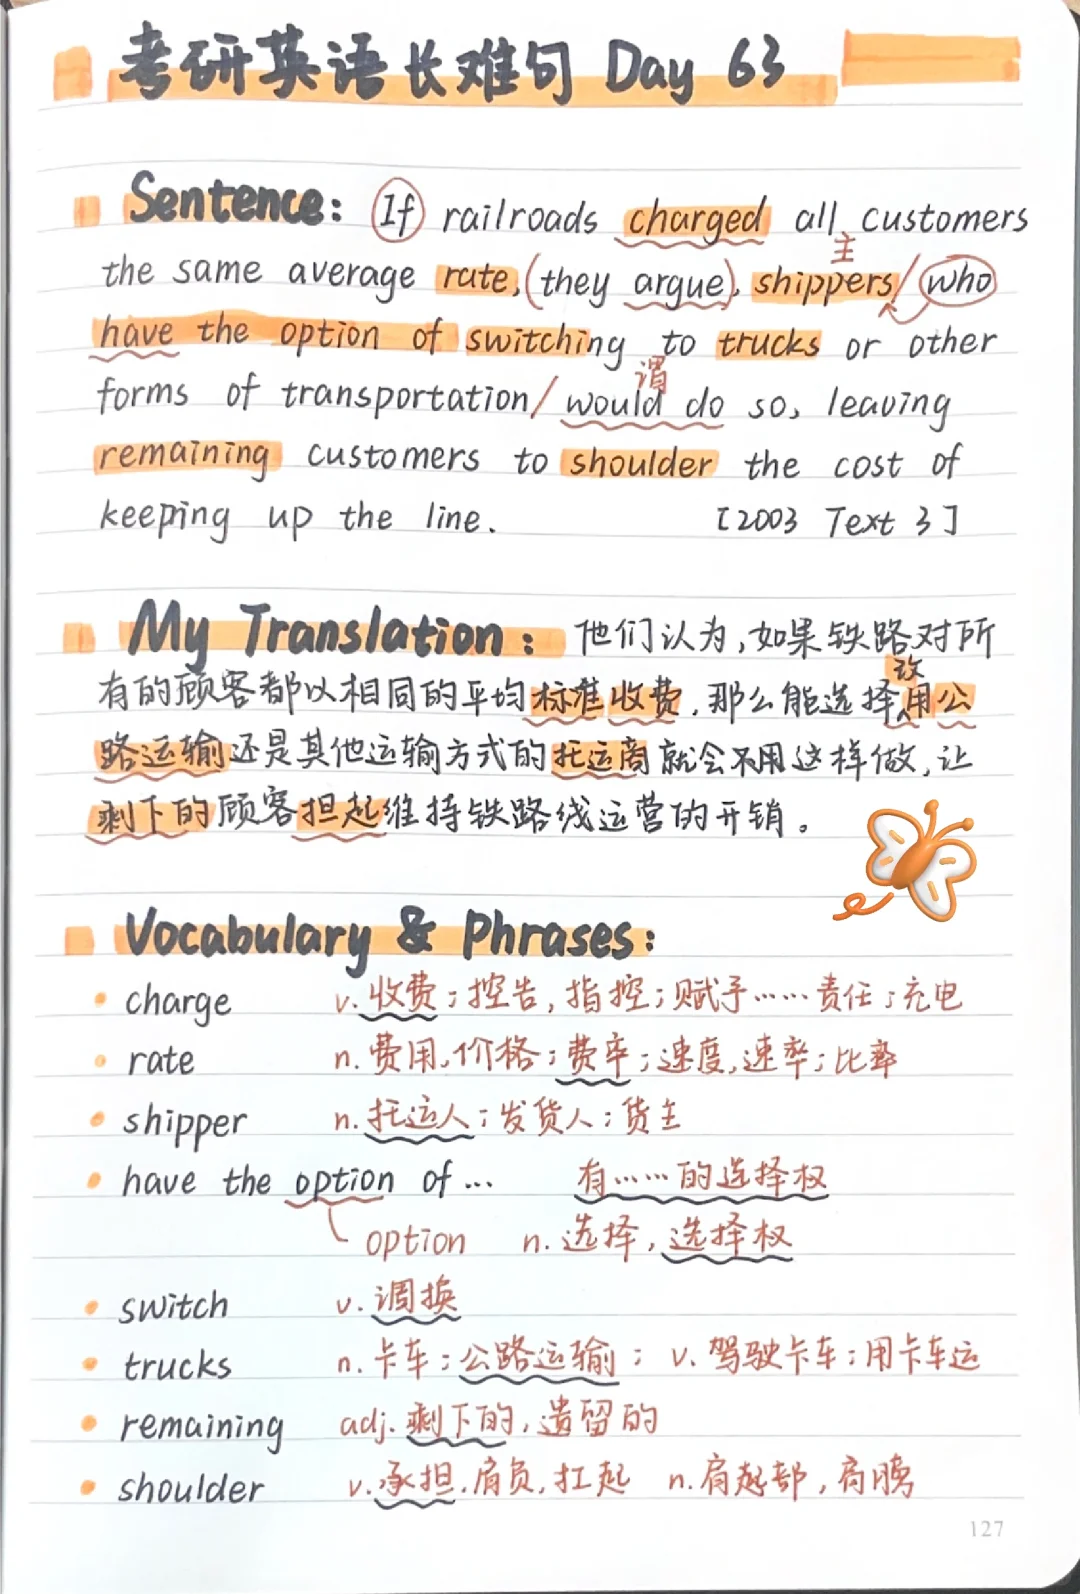 考研英语长难句 Day 63
Sentence: If railroads charged all customers
主
the same average rate, (they argue), shippers/who
have the option of switching to trucks or other
谓
forms of transportation/would do so, leaving
remaining customers to shoulder the cost of
keeping up the line. [2003 Text 3]
My Translation: 他们认为,如果铁路对所
改
有的顾客都以相同的平均标准收费,那么能选择用公
路运输还是其他运输方式的托运商就会不用这样做,让
剩下的顾客担起维持铁路线运营的开销。
Vocabulary & Phrases:
charge v. 收费;控告,指控;赋予……责任;充电
rate n. 费用,价格;费率;速度,速率;比率
shipper n. 托运人;发货人;货主
have the option of ... 有……的选择权
option n. 选择,选择权
switch v. 调换
trucks n. 卡车;公路运输; v. 驾驶卡车;用卡车运
remaining adj. 剩下的,遗留的
shoulder v. 承担,肩负,扛起 n. 肩部,肩膀
127